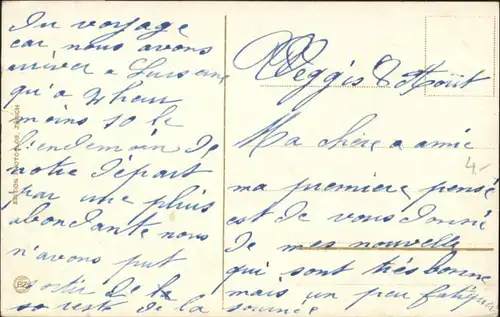 Weggis 8 Août
Ma chère a amie
ma première pensé
est de vous donné
de mes nouvelle
qui sont très bonne
mais un peu fatigué
du voyage
car nous avons
arriver a
qu'a 7 heur
moins 10 le
lendemain de
notre départ
par une pluis
abondante nous
n'avons put
sortir de le
so rest de la
EDITION PHOTOGLOB, ZÜRICH
4.-